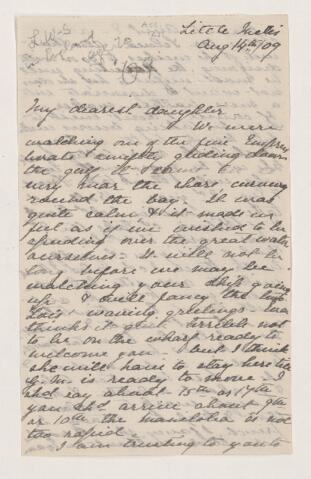 Little Metis
Aug 14th/09
My dearest daughter
We were
watching one of the fine Empress
boats swiftly gliding down
the gulf It came to
very near the shore coming
round the bay. It was
quite calm & it made us
feel as if we wished to be
speeding over the great water
ourselves. It will not be
long before we may be
watching your ship going
up & will fancy the two
waving greetings
thinks it quite not
to be on the wharf ready to
welcome you. but I think
she will have to stay here till
is ready to move. I
shd say about 15th or 17th
you shd arrive about 9th
or 10th the is not
too rapid
I am trusting to you to